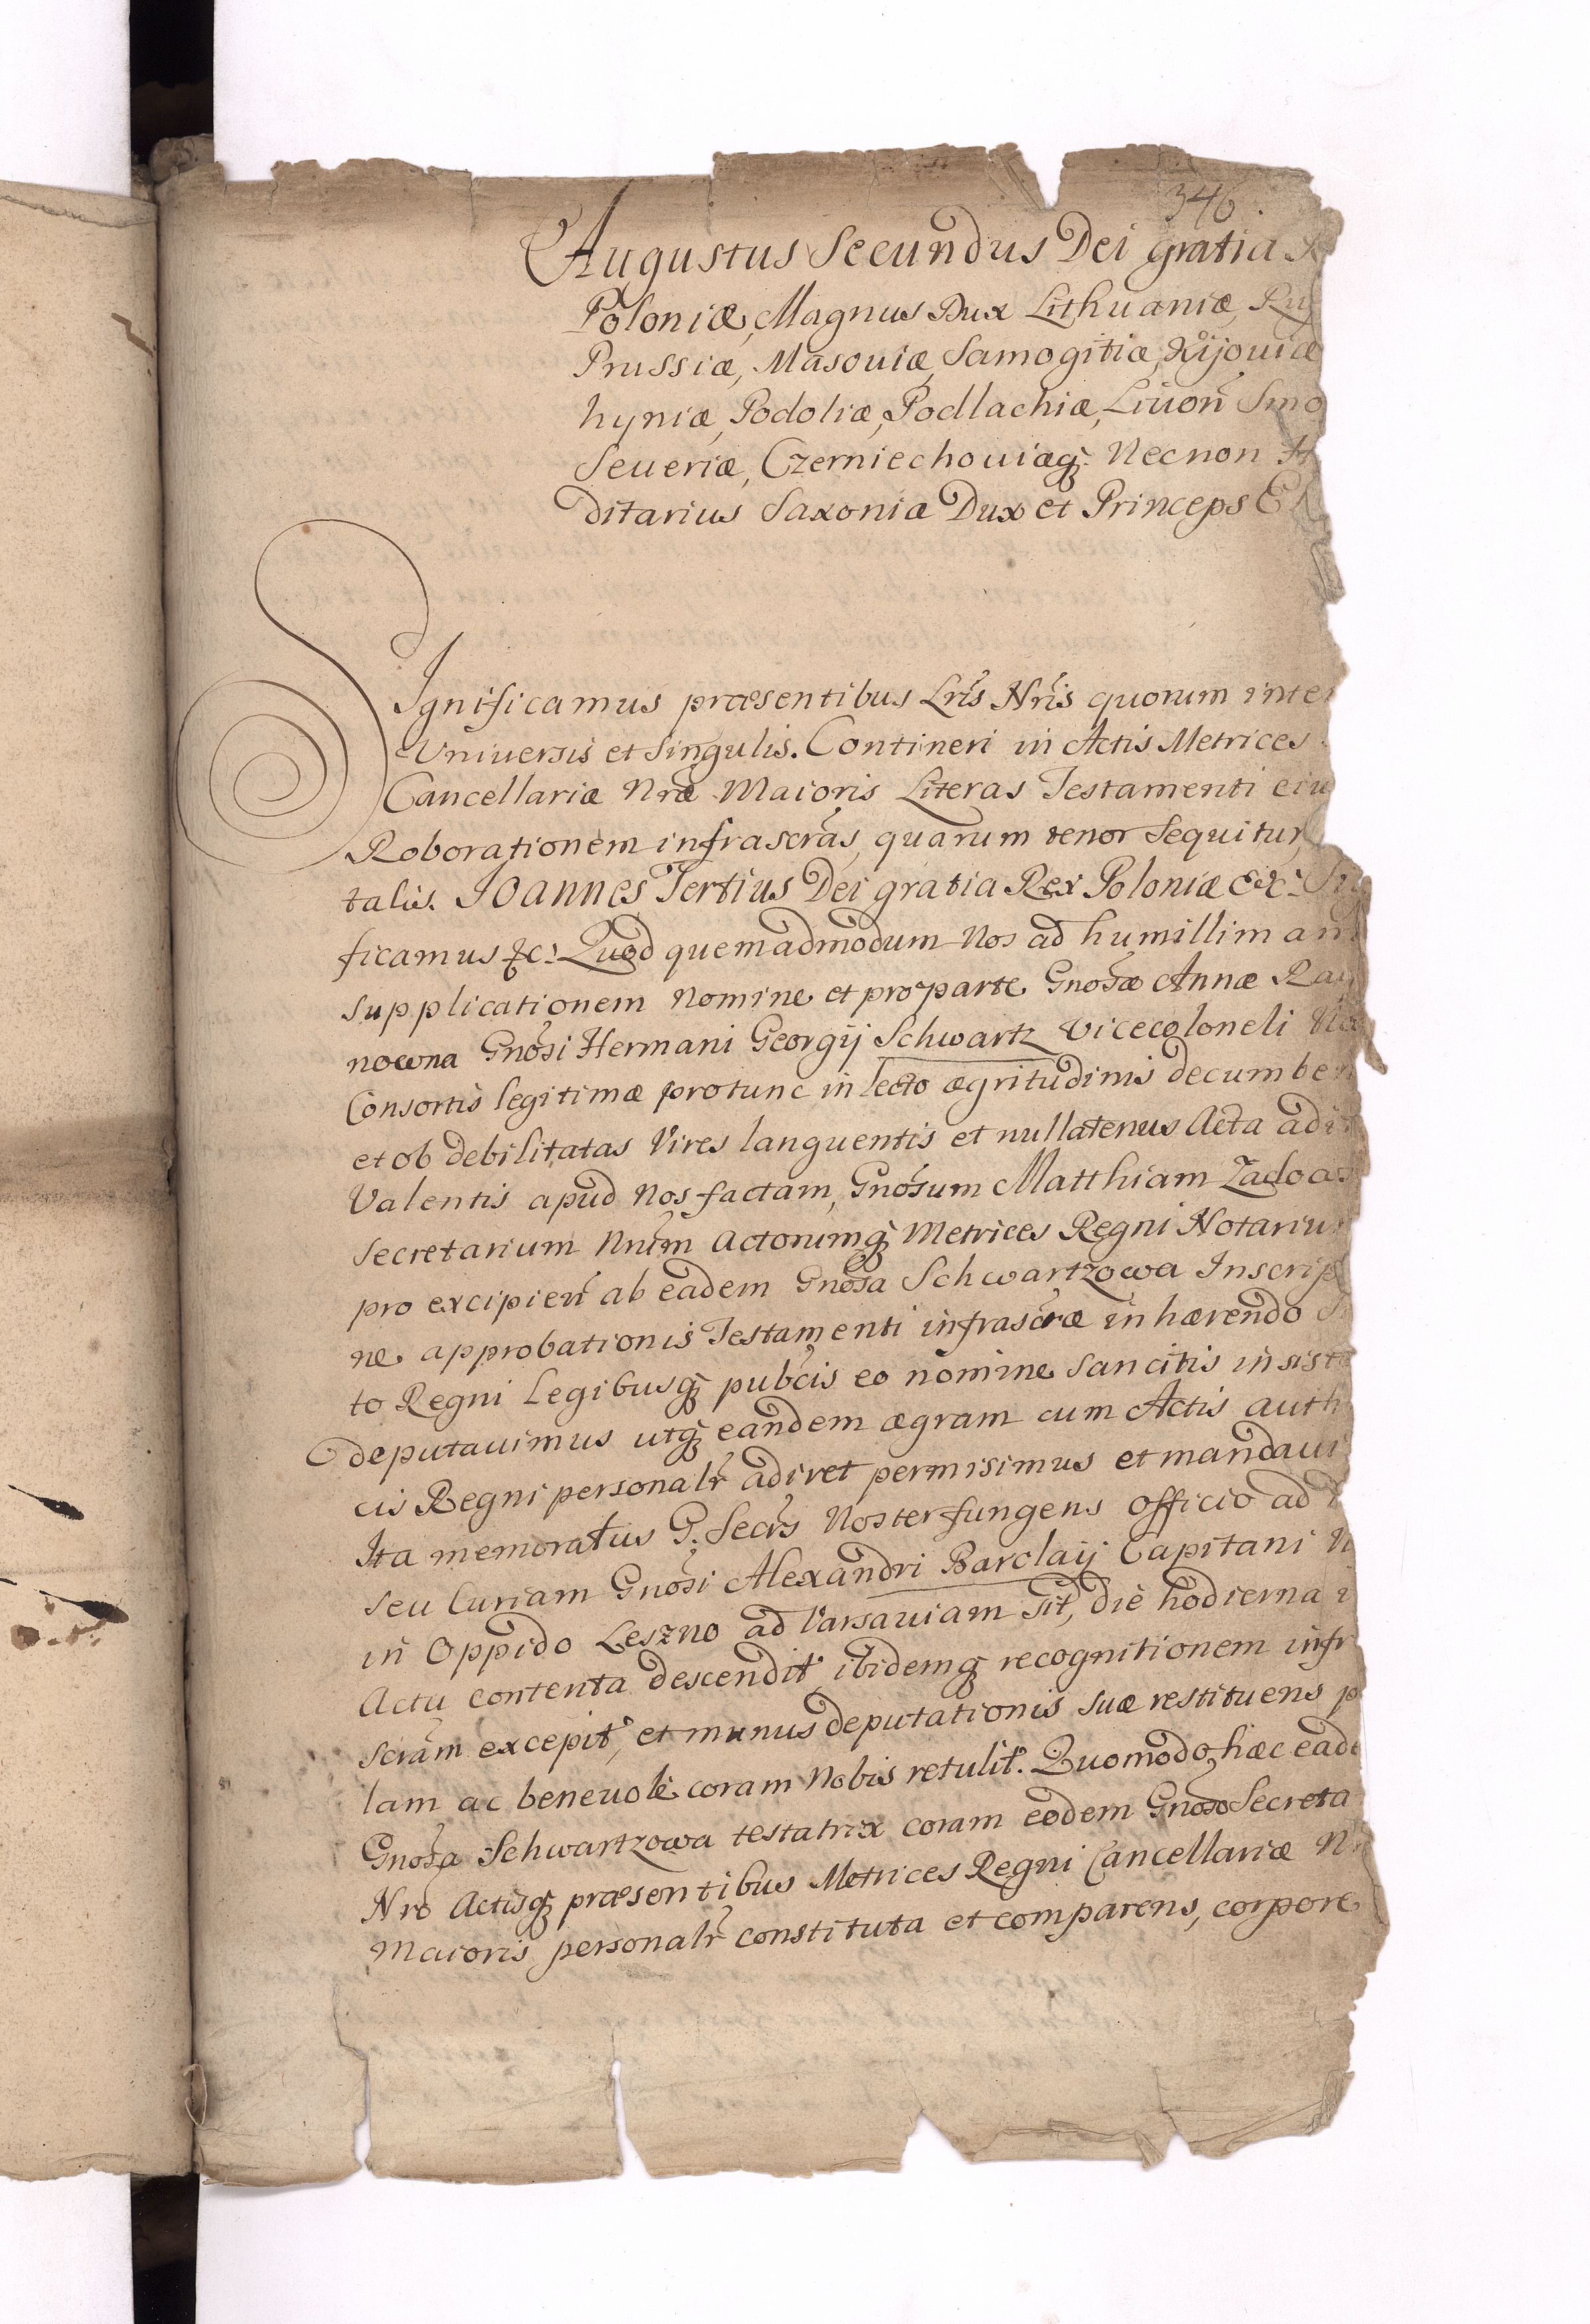 346
Augustus Secundus Dei gratia R
Poloniæ, Magnus Dux Lithuaniæ, Rus
Prussiæ, Masouiæ, Samogitiæ, Kijouiæ
hyniæ, Podoliæ, Podlachiæ, Liuon̄ Smo
Seueriæ, Czerniechouiæq̃. Necnon H
ditarius Saxoniæ Dux et Princeps El
Significamus præsentibus Lrīs Nrīs quorum inter
Universis et Singulis. Contineri in Actis Metrices
Cancellariæ Nræ Maioris Literas Testamenti eiu
Roborationem infrascrās, quarum tenor Sequitur
talis. Joannes Tertius Dei gratia Rex Poloniæ &c: Sig
ficamus &c: Quod quemadmodum Nos ad humillimam
supplicationem Nomine et pro parte Gnōsæ Annæ Ray
nowna Gnōsi Hermani Georgij Schwartz Vicecoloneli No
Consortis legitimæ protunc in lecto ægritudinis decumben
et ob debilitatas Vires languentis et nullatenus Acta adi
Valentis apud Nos factam, Gnōsum Matthiam Zadoc
Secretarium Nrūm Actorumq̃ Metrices Regni Notarium
pro excipien̄ ab eadem Gnōsa Schwartzowa Inscrip
ne approbationis Testamenti infrascræ inhærendo S
to Regni Legibusq̃ pubcīs eo nomine sancitis insist
deputauimus utq̃ eandem ægram cum Actis auth
cis Regni personalr̄ adiret permisimus et mandaui
Ita memoratus G. Secrīs Noster fungens officio ad
seu Curiam Gnōsi Alexandri Barclaij Capitani N
in Oppido Leszno ad Varsauiam sit, die hodierna i
Actu contenta descendit, ibidemq̃ recognitionem infr
scrām excepit, et munus deputationis suæ restituens p
lam ac beneuole coram Nobis retulit. Quomodo hæc eade
Gnōsa Schwartzowa testatrix coram eodem Gnōso Secreta
Nro Actisq̃ præsentibus Metrices Regni Cancellariæ N
Maioris personalr̄ constituta et comparens, corpore